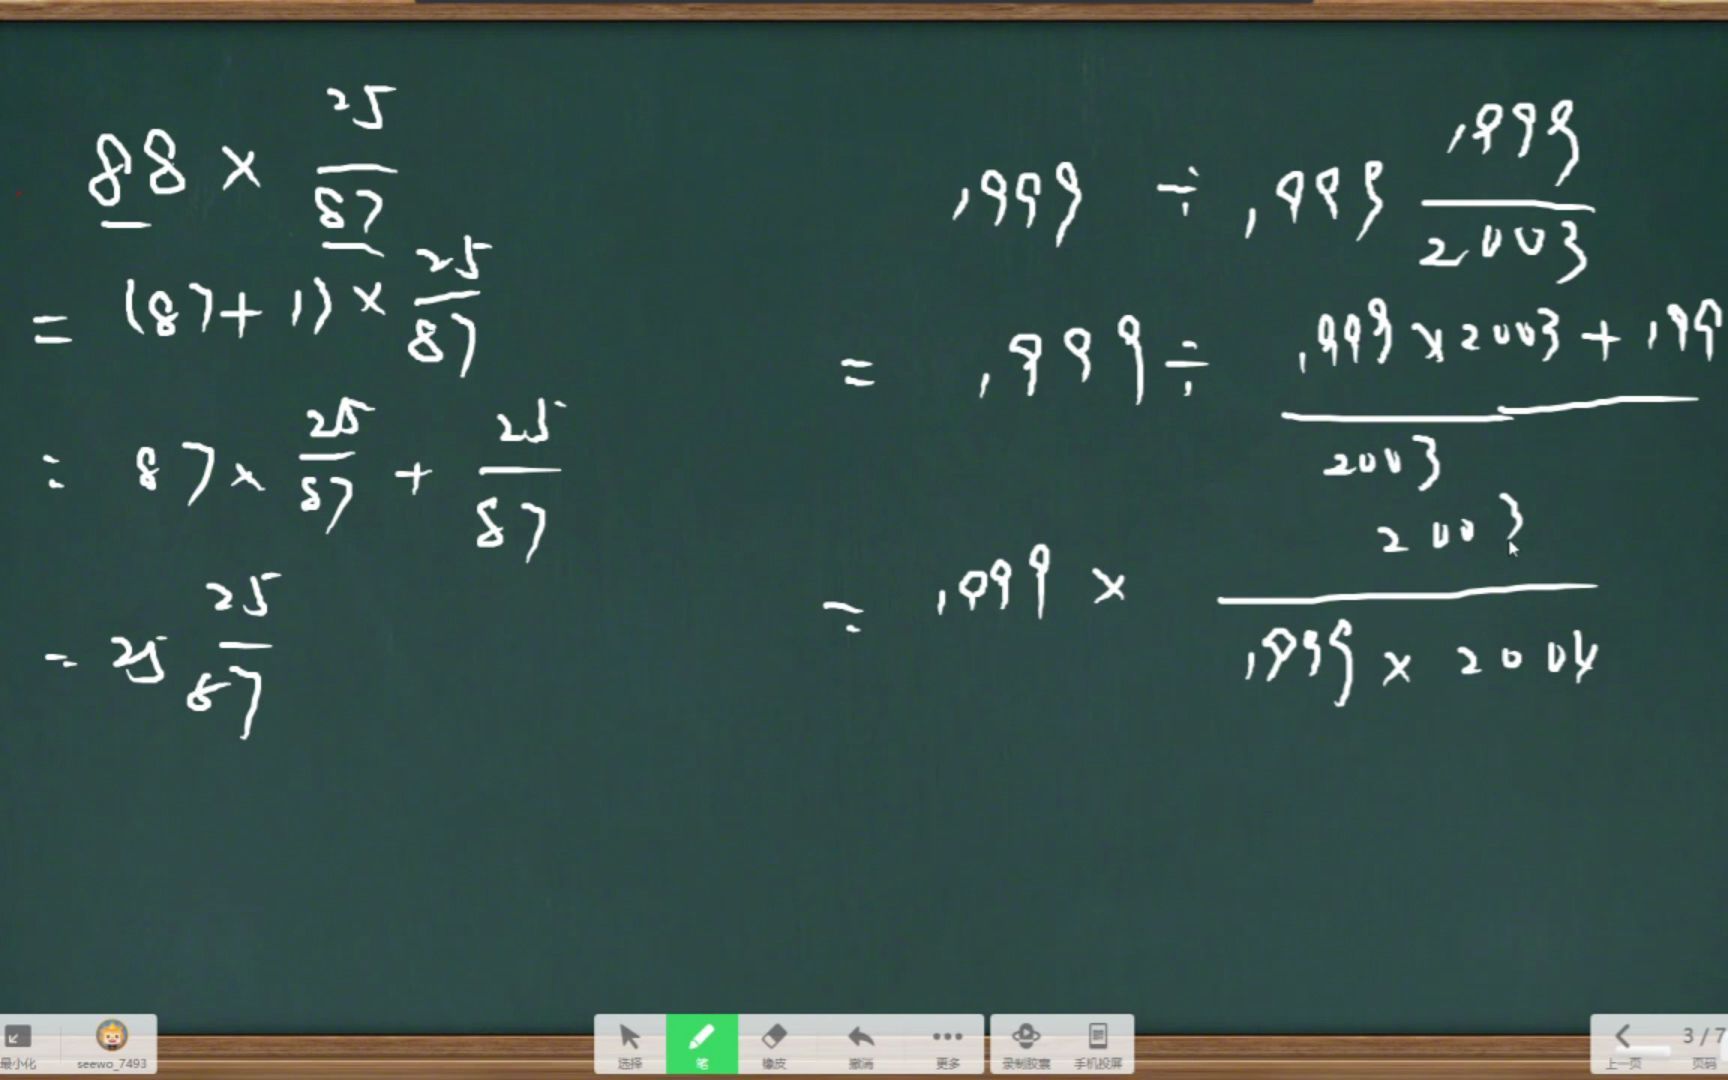 88 × 25/87
= (87+1) × 25/87
= 87 × 25/87 + 25/87
= 25 25/87
1999 ÷ 1999 1999/2003
= 1999 ÷ 1999×2003+199/2003
= 1999 × 2003/1999×2004
最小化
seewo_7493
选择
笔
橡皮
撤消
更多
录制胶囊
手机投屏
上一页
3 / 7
页码